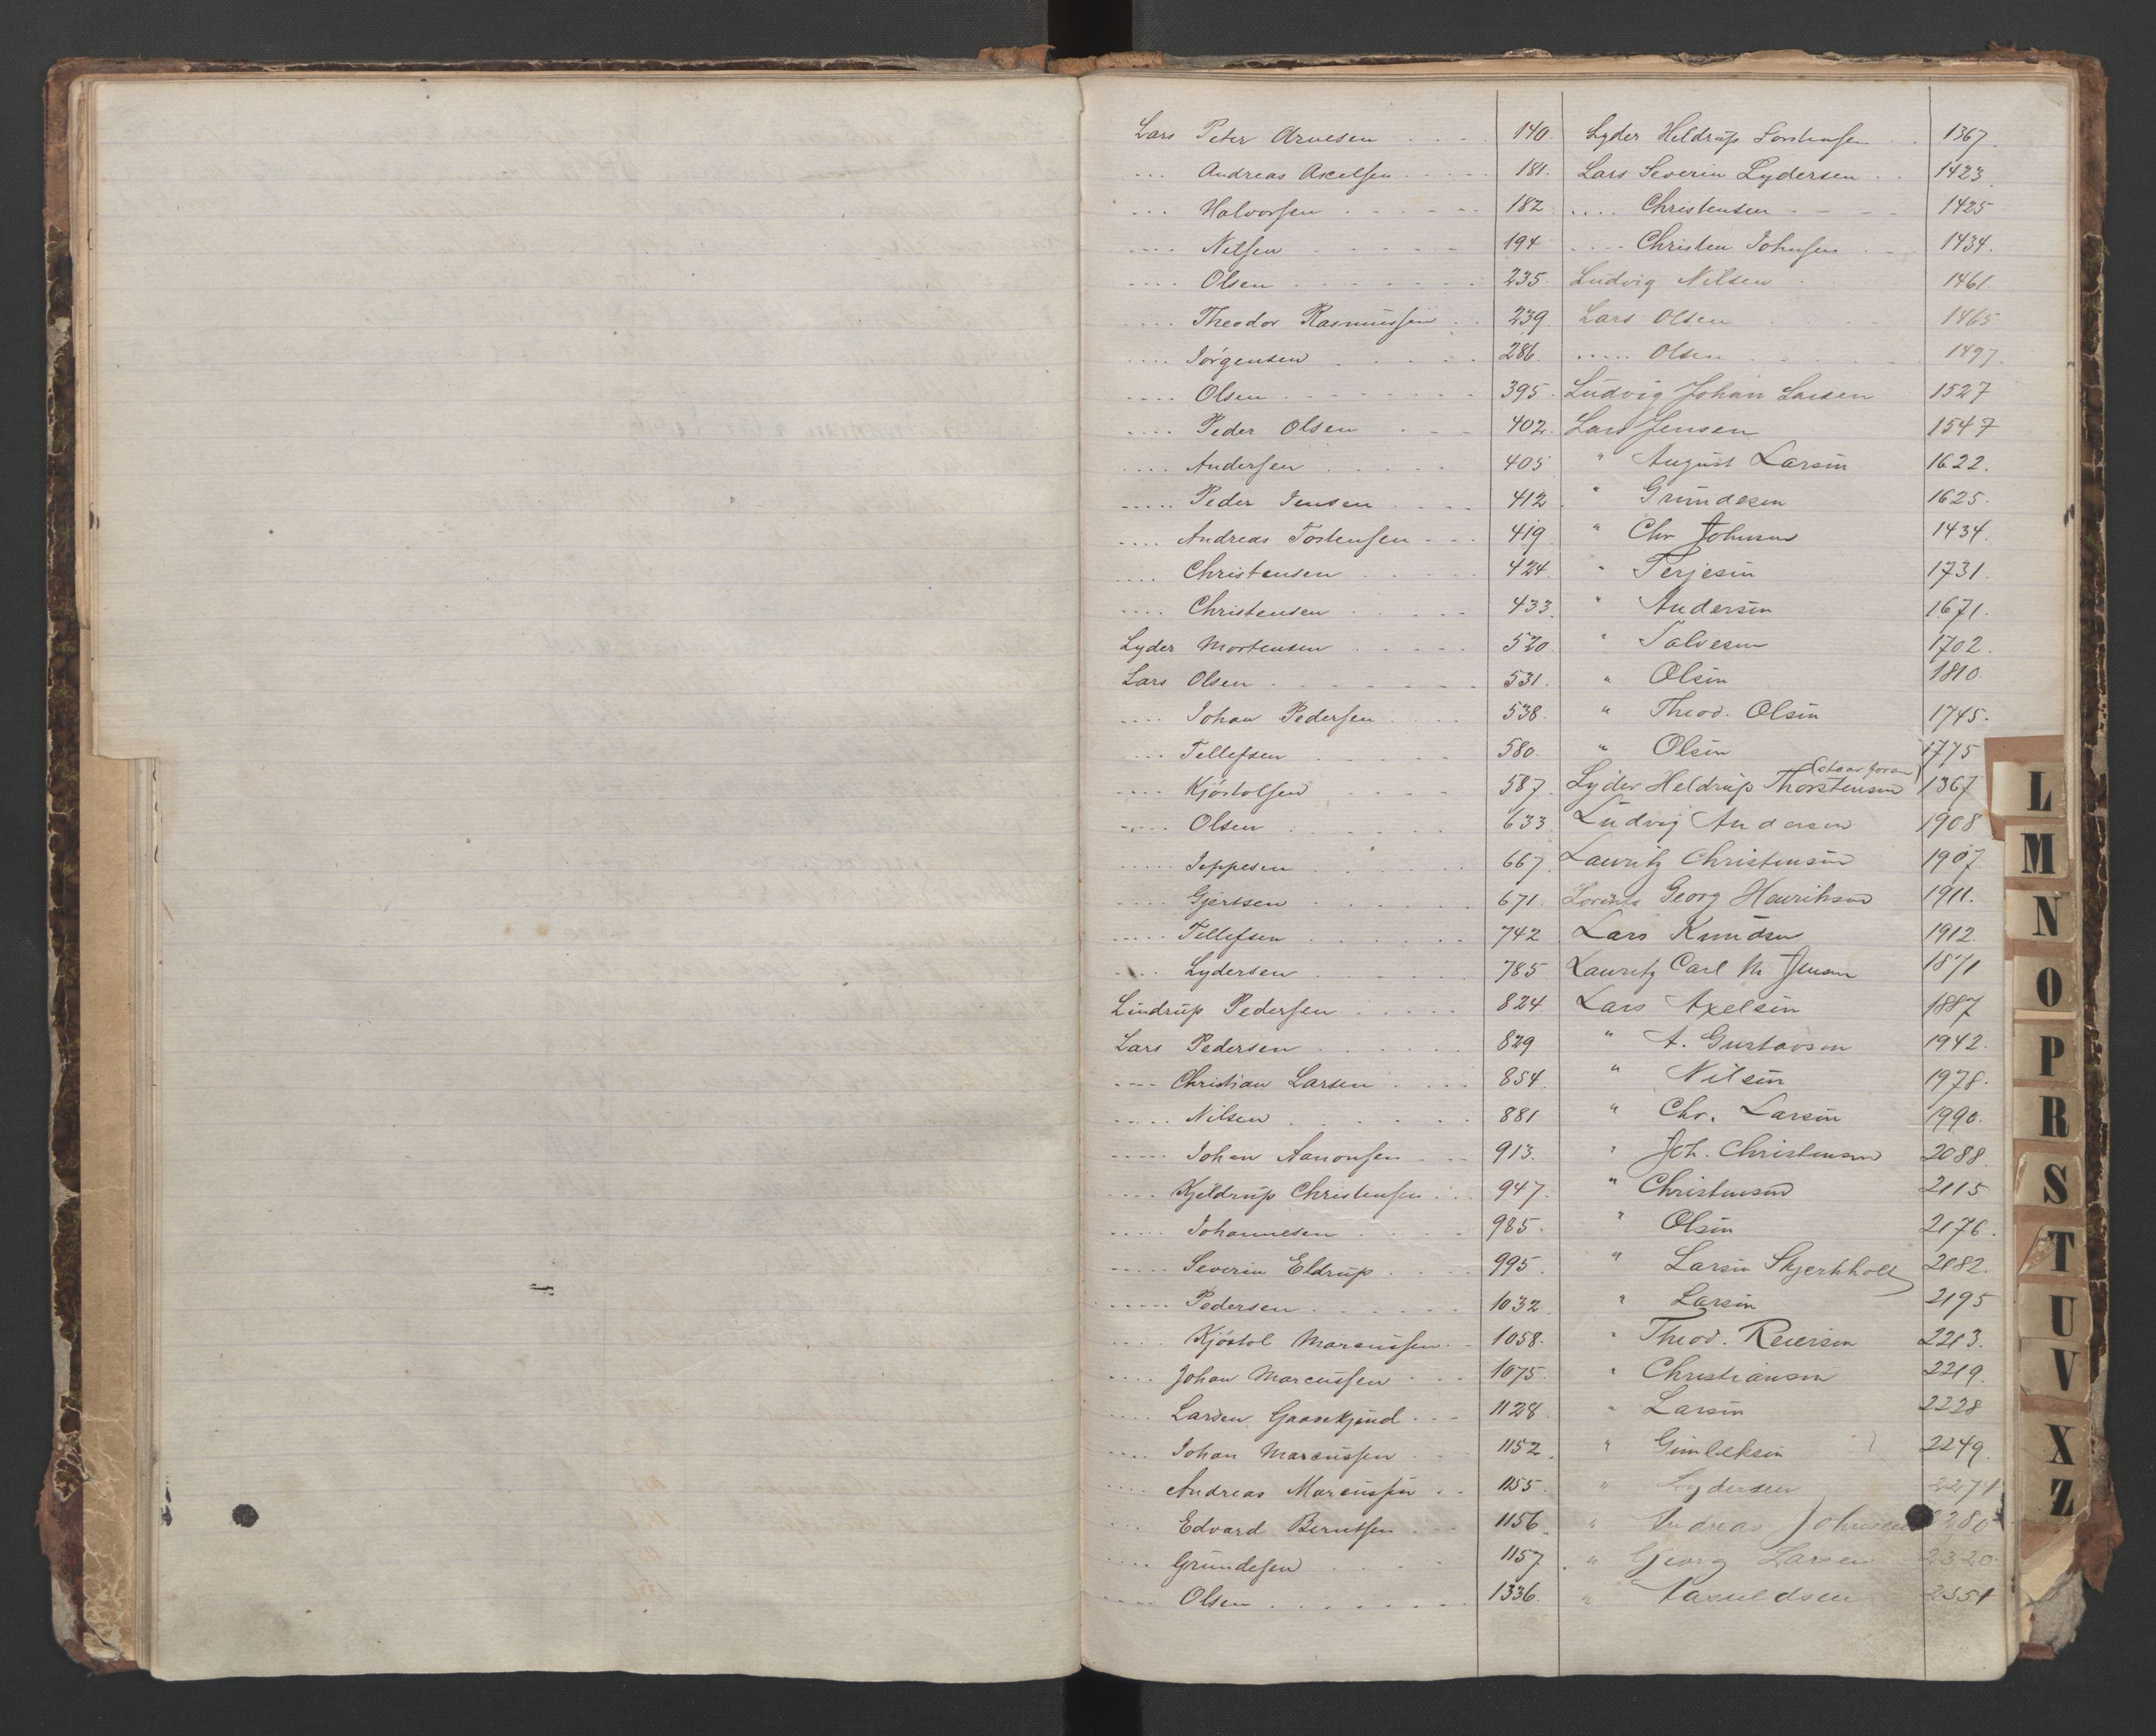 Lars Peter Arnesen 140.
.... Andreas Axelsen 181.
.... Halvorsen 182
.... Nilsen 194
.... Olsen 235.
.... Theodor Rasmussen 239.
.... Jörgensen 286.
.... Olsen 395.
.... Peder Olsen 402.
.... Andersen 405
.... Peder Jensen 412
.... Andreas Tostensen 419
.... Christensen 424.
.... Christensen 433.
Lyder Mortensen 520
Lars Olsen 531.
.... Johan Pedersen 538.
.... Tellefsen 580
.... Kjöstolsen 587.
.... Olsen 633
.... Jeppesen 667.
.... Gjertsen 671.
.... Tellefsen 742
.... Lydersen 785
Lindrup Pedersen 824
Lars Pedersen 829
.... Christian Larsen 854.
.... Nilsen 881
.... Johan Aanonsen 913.
.... Kjeldrup Christensen 947.
.... Johannesen 985.
.... Severin Eldrup 995.
.... Pedersen 1032
.... Kjöstol Marcussen 1058.
.... Johan Marcussen 1075.
.... Larsen 1128.
.... Johan Marcussen 1152.
.... Andreas Marcussen 1155.
.... Edvard Berntsen 1156.
.... Grundesen 1157.
.... Olsen 1336.
Lyder Heldrup Torstensen 1367
Lars Severin Lydersen 1423
.... Christensen 1425
.... Christen Johnsen 1434.
Ludvig Nilsen 1461.
Lars Olsen 1465
..... Olsen 1497.
Ludvig Johan Larsen 1527
Lars Jensen 1547
" August Larsen 1622.
" Grundesen 1625.
" Chr Johnsen 1434.
" Terjesen 1731.
" Andersen 1671.
" Salvesen 1702.
" Olsen 1810.
" Theod. Olsen 1745.
" Olsen 1775
(staar foran)
Lyder Heldrup Thorstensen 1367
Ludvig Andersen 1908
Lauritz Christensen 1907
Lorents Georg Henriksen 1911.
Lars Knudsen 1912.
Lauritz Carl M. Jensen 1871
Lars Axelsen 1887
" A. Gustavsen 1942.
" Nilsen 1978.
" Chr. Larsen 1990.
" Joh. Christensen 2088.
" Christensen 2115
" Olsen 2176.
" Larsen Skjerkholt 2182.
" Larsen 2195
" Theod. Reiersen 2213.
" Christiansen 2219.
" Larsen 2228
" Gunleksen 2249.
" Lydersen 2271
" Andreas Johnsen 2280
" Georg Larsen 2320.
" Tasuldsen 2351
L
M
N
O
P
R
S
T
U
V
X
Z